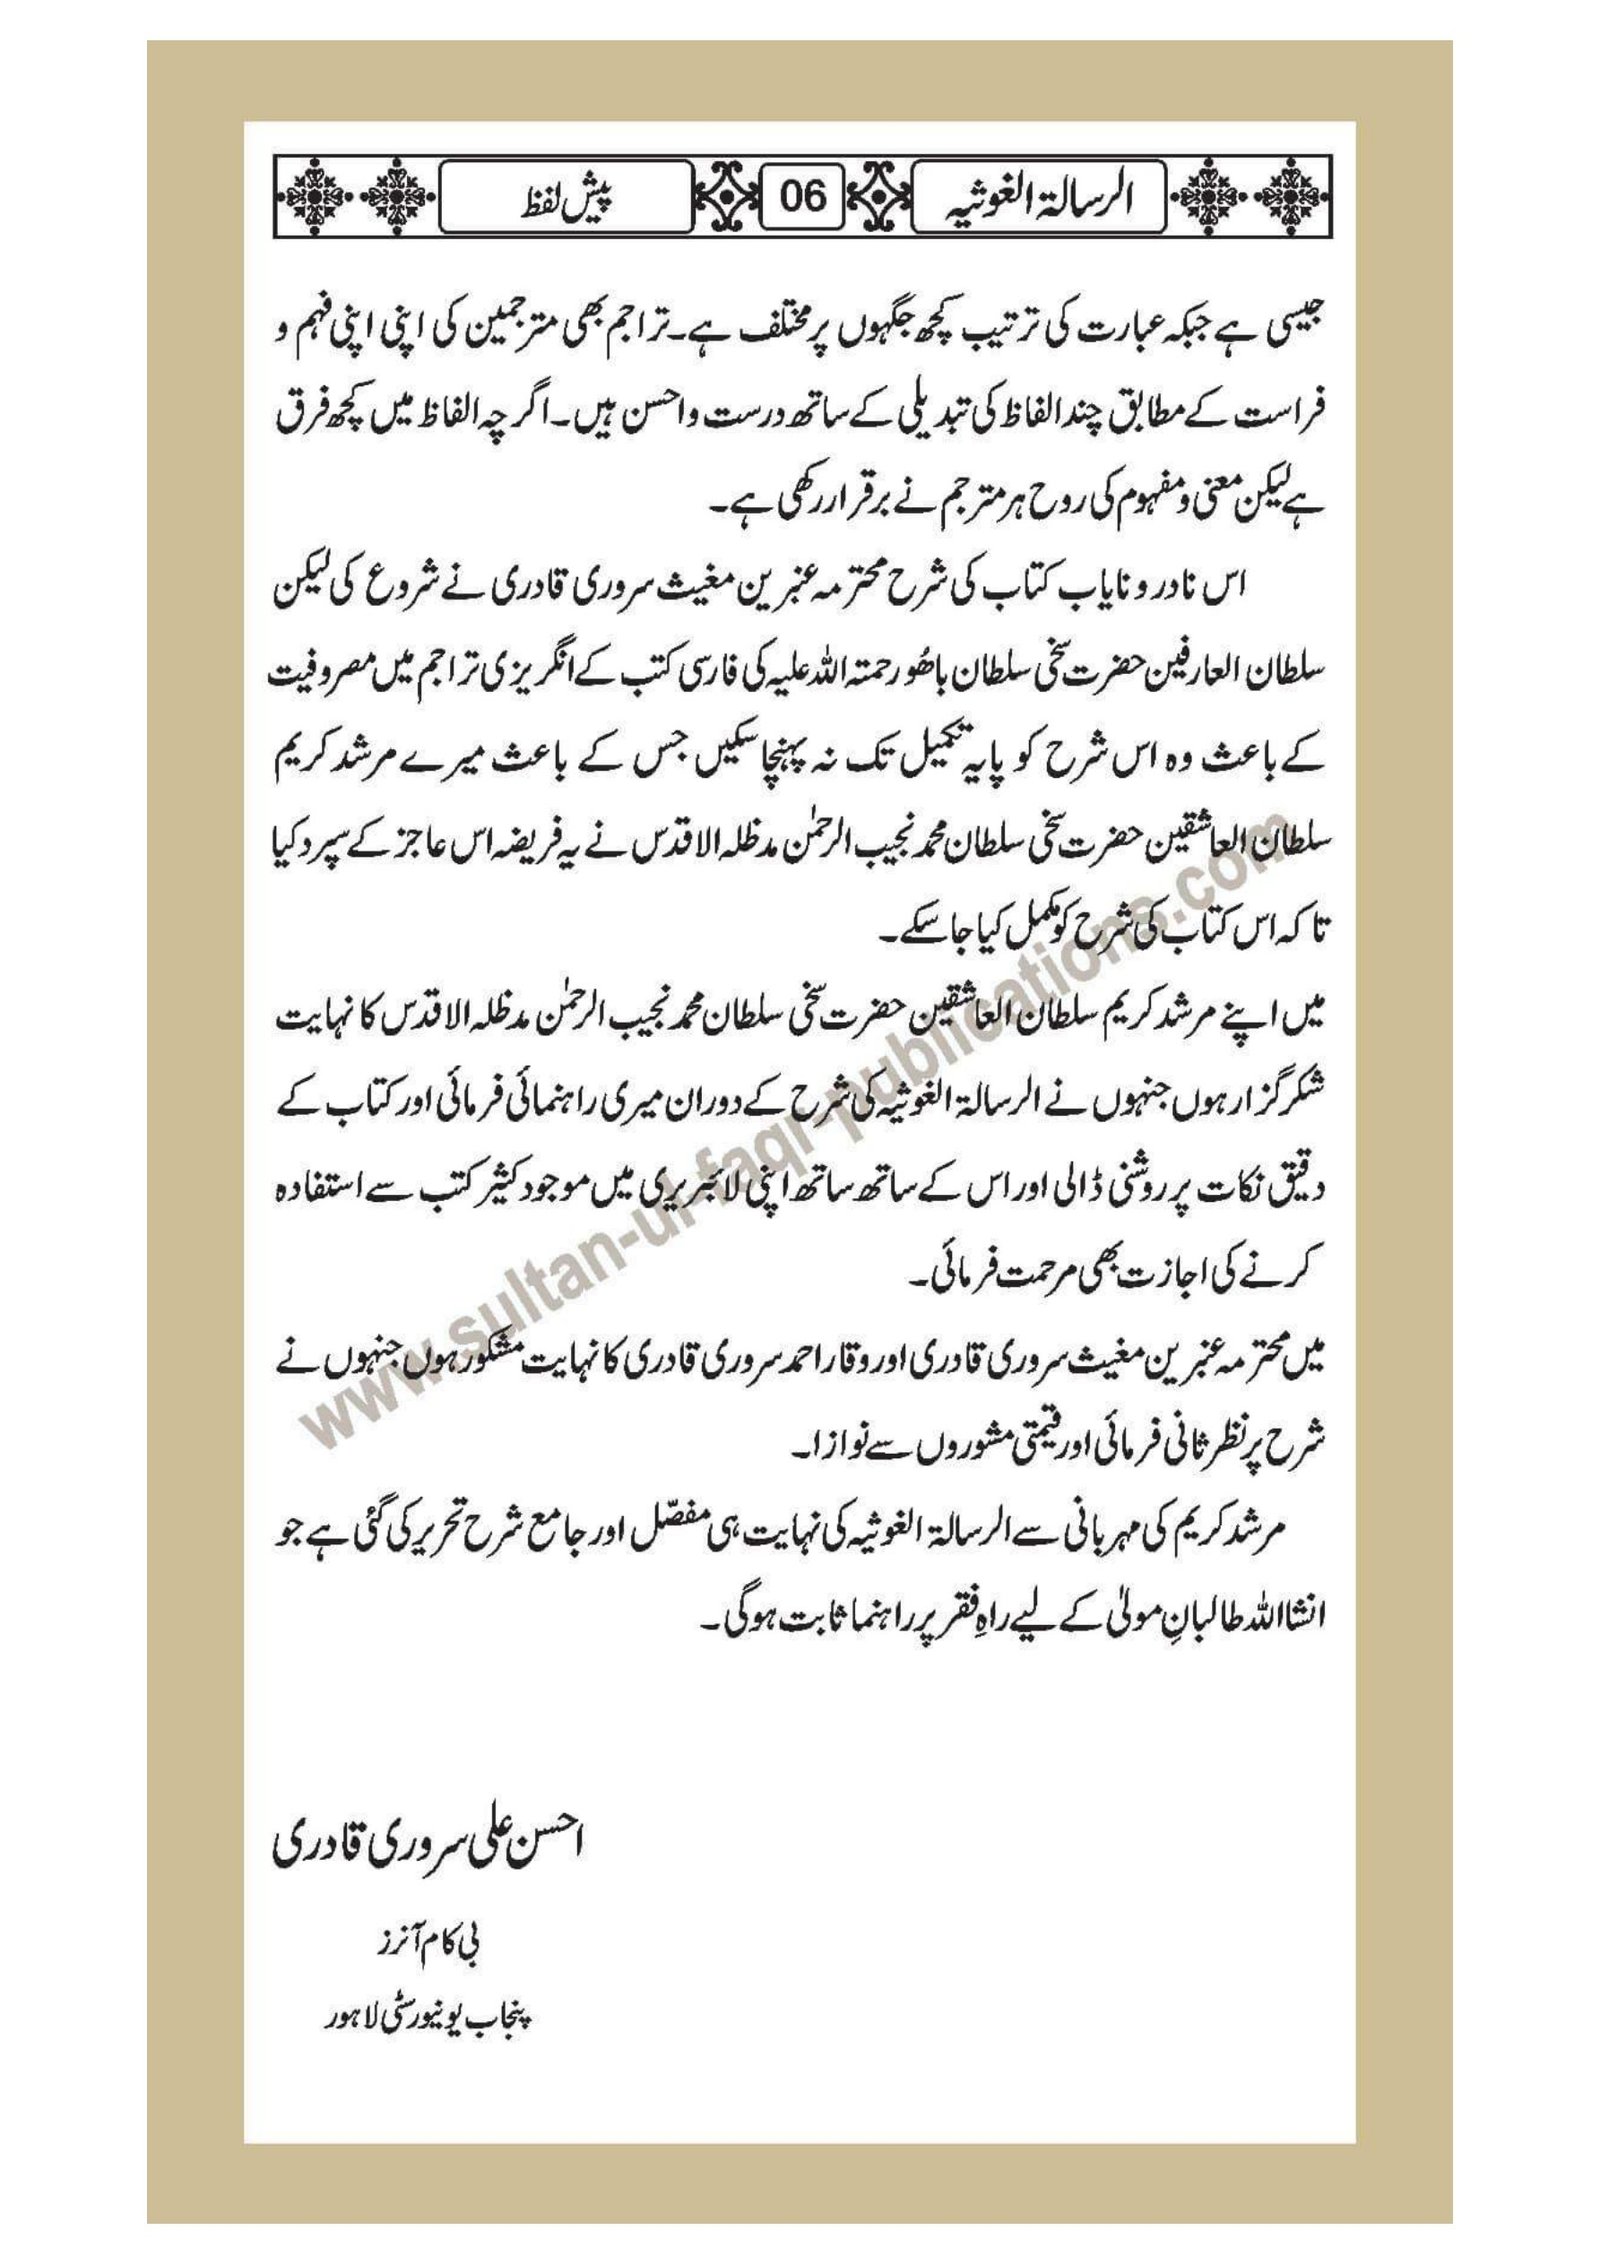 الرسالۃ الغوثیہ
06
پیش لفظ
جیسی ہے جبکہ عبارت کی ترتیب کچھ جگہوں پر مختلف ہے۔ تراجم بھی مترجمین کی اپنی اپنی فہم و
فراست کے مطابق چند الفاظ کی تبدیلی کے ساتھ درست و احسن ہیں۔ اگرچہ الفاظ میں کچھ فرق
ہے لیکن معنی و مفہوم کی روح ہر مترجم نے برقرار رکھی ہے۔
اس نادر و نایاب کتاب کی شرح محترمہ عنبرین مغیث سروری قادری نے شروع کی لیکن
سلطان العارفین حضرت سخی سلطان باھُو رحمتہ اللہ علیہ کی فارسی کتب کے انگریزی تراجم میں مصروفیت
کے باعث وہ اس شرح کو پایہ تکمیل تک نہ پہنچا سکیں جس کے باعث میرے مرشد کریم
سلطان العاشقین حضرت سخی سلطان محمد نجیب الرحمٰن مدظلہ الاقدس نے یہ فریضہ اس عاجز کے سپرد کیا
تاکہ اس کتاب کی شرح کو مکمل کیا جا سکے۔
میں اپنے مرشد کریم سلطان العاشقین حضرت سخی سلطان محمد نجیب الرحمٰن مدظلہ الاقدس کا نہایت
شکر گزار ہوں جنہوں نے الرسالۃ الغوثیہ کی شرح کے دوران میری راہنمائی فرمائی اور کتاب کے
دقیق نکات پر روشنی ڈالی اور اس کے ساتھ ساتھ اپنی لائبریری میں موجود کثیر کتب سے استفادہ
کرنے کی اجازت بھی مرحمت فرمائی۔
میں محترمہ عنبرین مغیث سروری قادری اور وقار احمد سروری قادری کا نہایت مشکور ہوں جنہوں نے
شرح پر نظر ثانی فرمائی اور قیمتی مشوروں سے نوازا۔
مرشد کریم کی مہربانی سے الرسالۃ الغوثیہ کی نہایت ہی مفصّل اور جامع شرح تحریر کی گئی ہے جو
انشااللہ طالبانِ مولیٰ کے لیے راہِ فقر پر راہنما ثابت ہو گی۔
احسن علی سروری قادری
بی کام آنرز
پنجاب یونیورسٹی لاہور
www.sultan-ul-faqr-publications.com